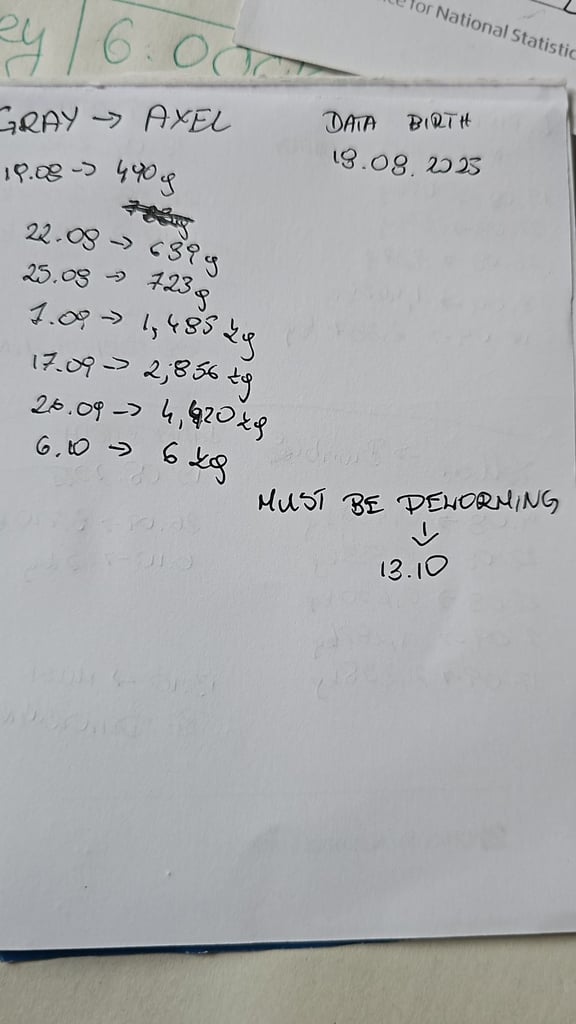 ey / 6.000
ce for National Statistic
GRAY → AXEL
DATA BIRTH
18.08.2025
19.08 → 490g
22.08 → 639g
25.08 → 723g
7.09 → 1,485 kg
17.09 → 2,856 kg
26.09 → 4,420 kg
6.10 → 6 kg
MUST BE DEWORMING
↓
13.10